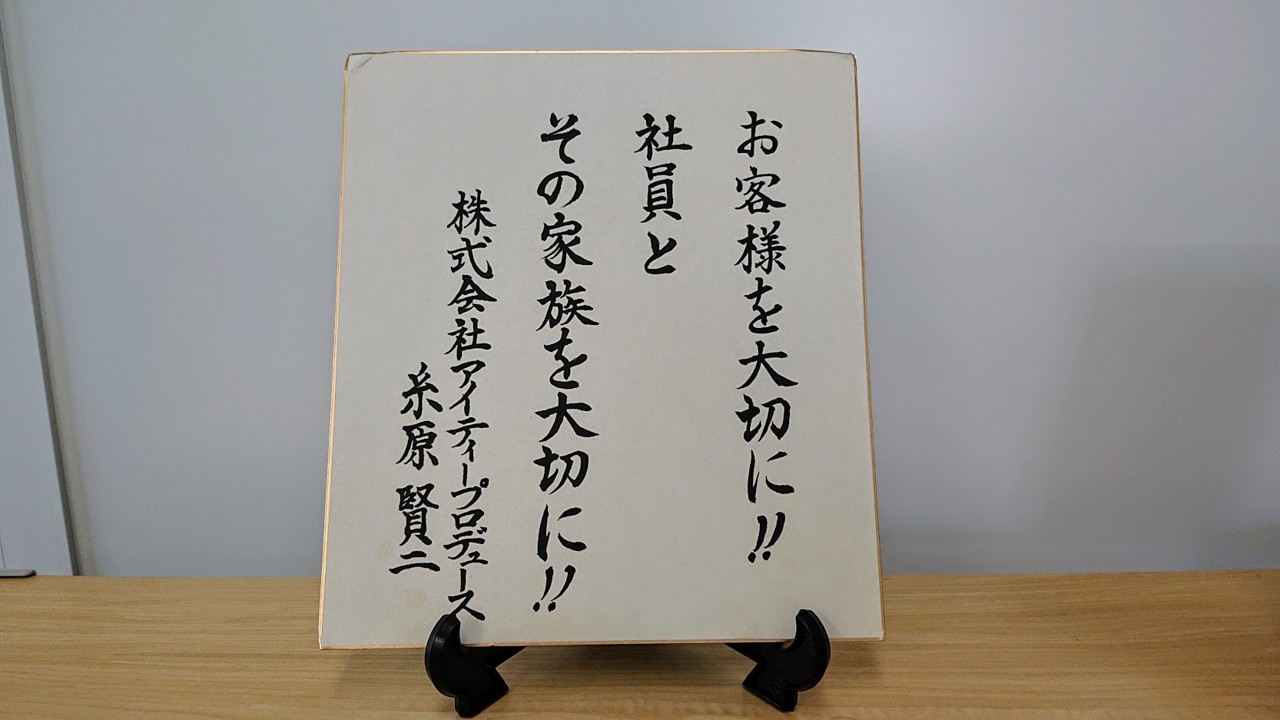 お客様を大切に!!
社員と
その家族を大切に!!
株式会社アイティープロデュース
糸原 賢二